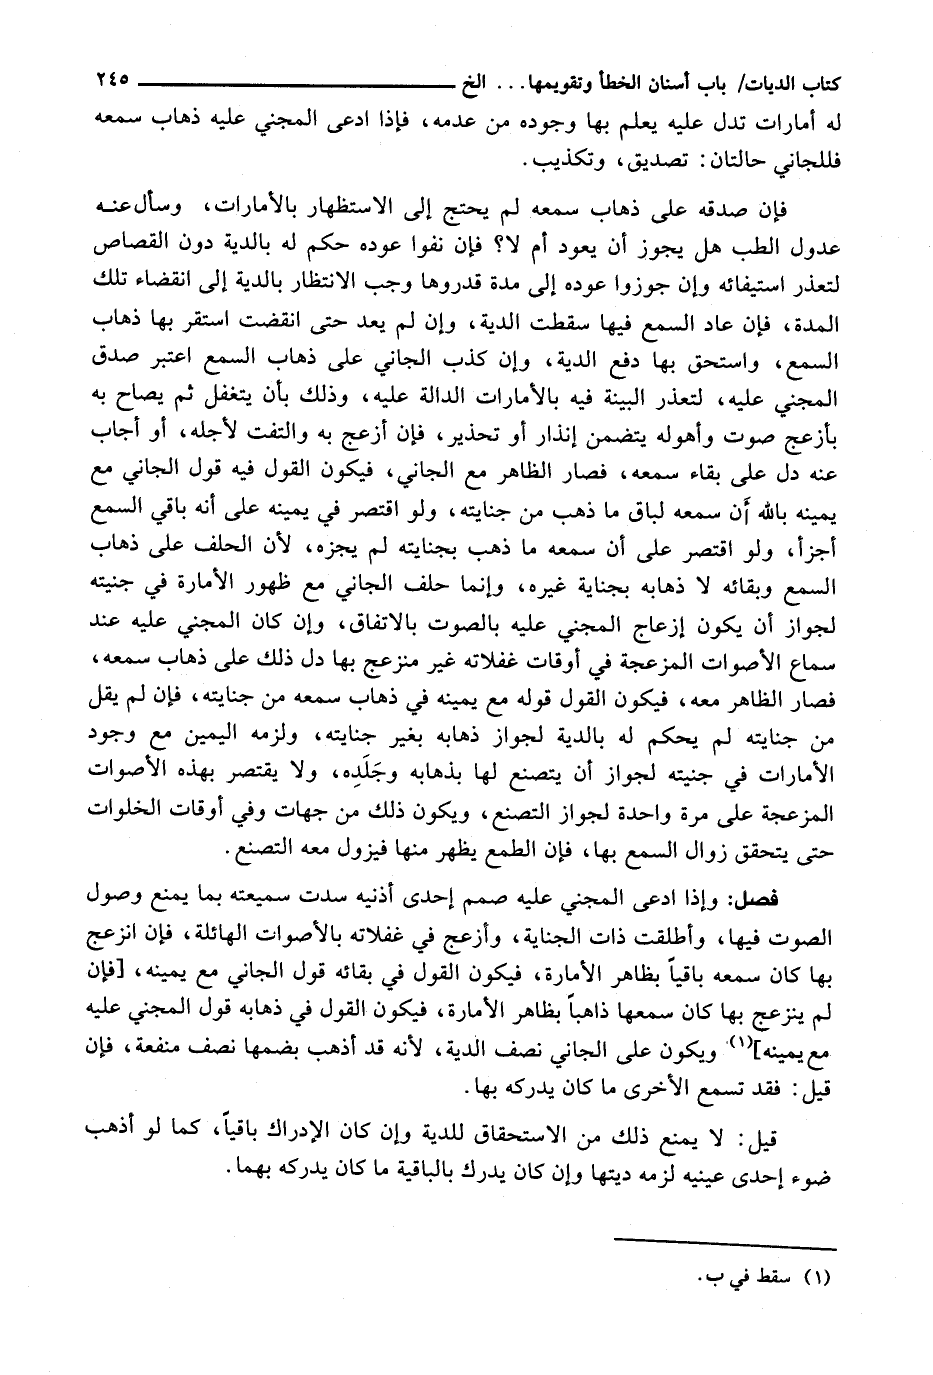 كتاب الديات/ باب أسنان الخطأ وتقويمها... الخ ٢٤٥
له أمارات تدل عليه يعلم بها وجوده من عدمه، فإذا ادعى المجني عليه ذهاب سمعه
فللجاني حالتان: تصديق، وتكذيب.
فإن صدقه على ذهاب سمعه لم يحتج إلى الاستظهار بالأمارات، وسأل عنه
عدول الطب هل يجوز أن يعود أم لا؟ فإن نفوا عوده حكم له بالدية دون القصاص
لتعذر استيفائه وإن جوزوا عوده إلى مدة قدروها وجب الانتظار بالدية إلى انقضاء تلك
المدة، فإن عاد السمع فيها سقطت الدية، وإن لم يعد حتى انقضت استقر بها ذهاب
السمع، واستحق بها دفع الدية، وإن كذب الجاني على ذهاب السمع اعتبر صدق
المجني عليه، لتعذر البينة فيه بالأمارات الدالة عليه، وذلك بأن يتغفل ثم يصاح به
بأزعج صوت وأهوله يتضمن إنذار أو تحذير، فإن أزعج به والتفت لأجله، أو أجاب
عنه دل على بقاء سمعه، فصار الظاهر مع الجاني، فيكون القول فيه قول الجاني مع
يمينه بالله أَن سمعه لباق ما ذهب من جنايته، ولو اقتصر في يمينه على أنه باقي السمع
أجزأ، ولو اقتصر على أن سمعه ما ذهب بجنايته لم يجزه، لأن الحلف على ذهاب
السمع وبقائه لا ذهابه بجناية غيره، وإنما حلف الجاني مع ظهور الأمارة في جنيته
لجواز أن يكون إزعاج المجني عليه بالصوت بالاتفاق، وإن كان المجني عليه عند
سماع الأصوات المزعجة في أوقات غفلاته غير منزعج بها دل ذلك على ذهاب سمعه،
فصار الظاهر معه، فيكون القول قوله مع يمينه في ذهاب سمعه من جنايته، فإن لم يقل
من جنايته لم يحكم له بالدية لجواز ذهابه بغير جنايته، ولزمه اليمين مع وجود
الأمارات في جنيته لجواز أن يتصنع لها بذهابه وجَلَدِه، ولا يقتصر بهذه الأصوات
المزعجة على مرة واحدة لجواز التصنع، ويكون ذلك من جهات وفي أوقات الخلوات
حتى يتحقق زوال السمع بها، فإن الطمع يظهر منها فيزول معه التصنع.
فصل: وإذا ادعى المجني عليه صمم إحدى أذنيه سدت سميعته بما يمنع وصول
الصوت فيها، وأطلقت ذات الجناية، وأزعج في غفلاته بالأصوات الهائلة، فإن انزعج
بها كان سمعه باقياً بظاهر الأمارة، فيكون القول في بقائه قول الجاني مع يمينه، [فإن
لم ينزعج بها كان سمعها ذاهباً بظاهر الأمارة، فيكون القول في ذهابه قول المجني عليه
مع يمينه](١) ويكون على الجاني نصف الدية، لأنه قد أذهب بضمها نصف منفعة، فإن
قيل: فقد تسمع الأخرى ما كان يدركه بها.
قيل: لا يمنع ذلك من الاستحقاق للدية وإن كان الإدراك باقياً، كما لو أذهب
ضوء إحدى عينيه لزمه ديتها وإن كان يدرك بالباقية ما كان يدركه بهما.
(١) سقط في ب.